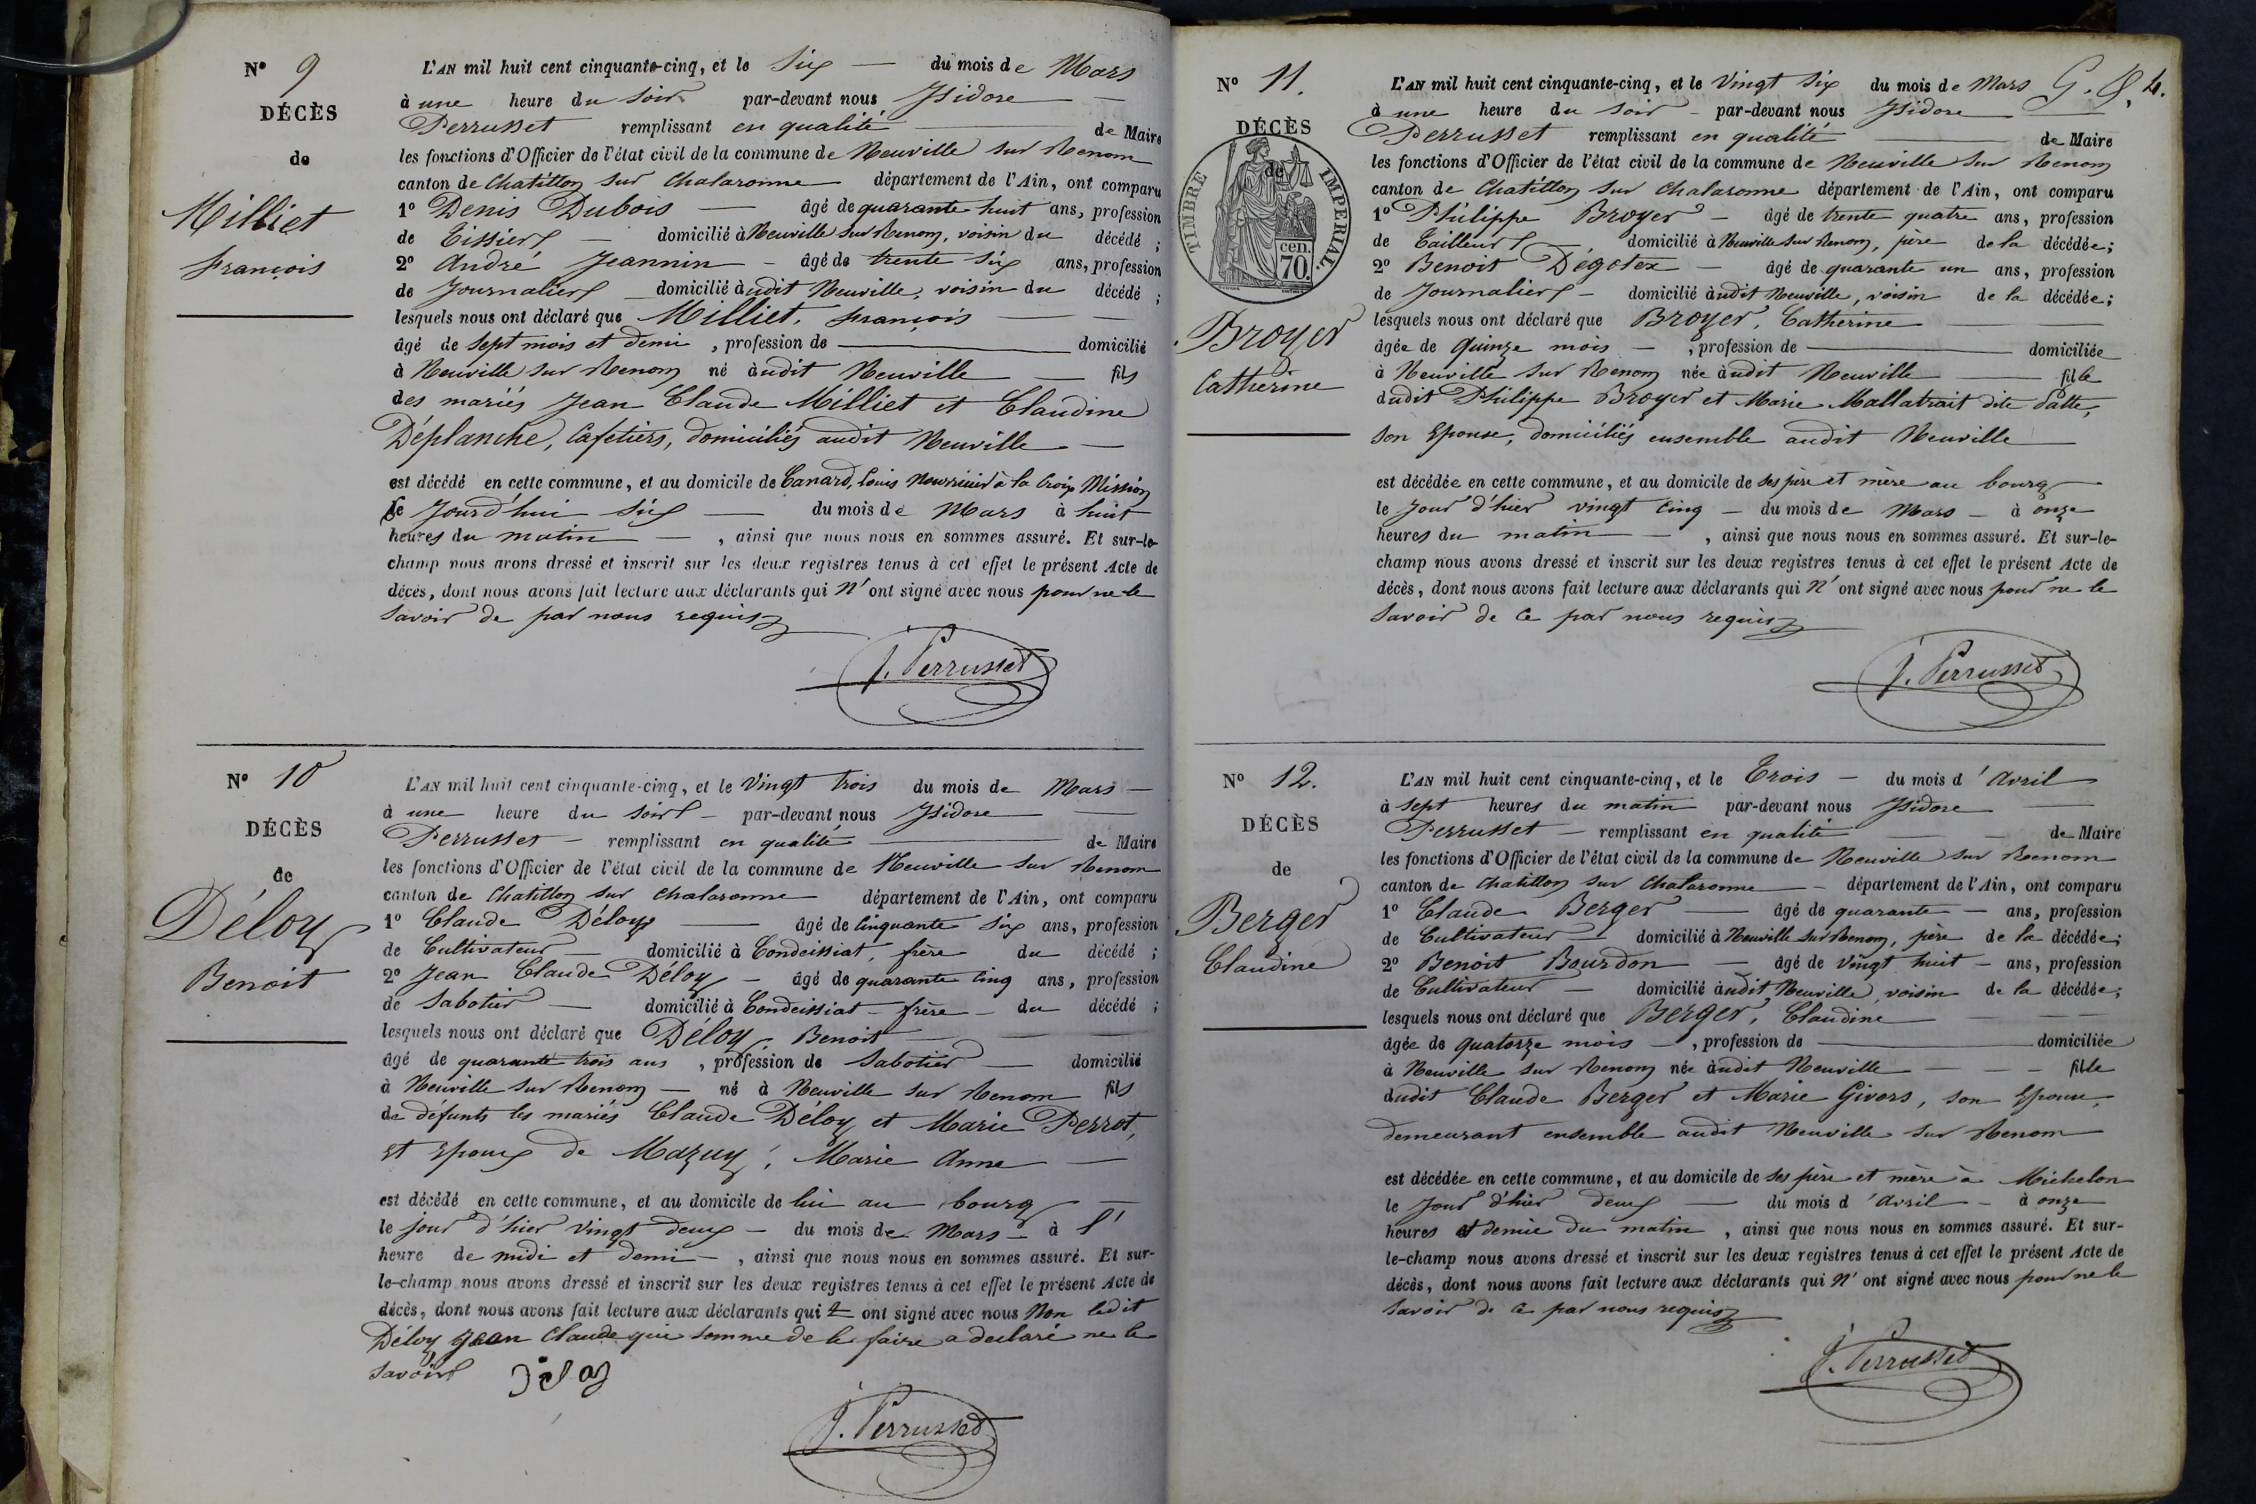 N° 9
DÉCÈS
de
Milliet
françois
L'AN mil huit cent cinquante-cinq, et le Six — du mois de Mars
à une heure du soir par-devant nous Isidore —
Perrusset remplissant en qualité — de Maire
les fonctions d'Officier de l'état civil de la commune de Neuville sur Renom
canton de Chatillon sur Chalaronne — département de l'Ain, ont comparu
1° Denis Dubois — âgé de quarante huit ans, profession
de Tissier — domicilié à Neuville sur Renom, voisin du décédé ;
2° André Jeannin — âgé de trente six ans, profession
de Journalier — domicilié audit Neuville, voisin du décédé ;
lesquels nous ont déclaré que Milliet, françois —
âgé de sept mois et demi , profession de — domicilié
à Neuville sur Renom né audit Neuville — fils
des mariés Jean Claude Milliet et Claudine
Déplanche, Cafetiers, domiciliés audit Neuville —
est décédé en cette commune, et au domicile de Canard, Louis Nourricier à la Croix Mission
le Jourd'hui Six — du mois de Mars à huit
heures du matin — , ainsi que nous nous en sommes assuré. Et sur-le-
champ nous avons dressé et inscrit sur les deux registres tenus à cet effet le présent Acte de
décès, dont nous avons fait lecture aux déclarants qui n'ont signé avec nous pour ne le
savoir de par nous requis
J. Perrusset
N° 10
DÉCÈS
de
Déloy
Benoit
L'AN mil huit cent cinquante-cinq, et le Vingt trois du mois de Mars —
à une heure du soir — par-devant nous Isidore —
Perrusset — remplissant en qualité — de Maire
les fonctions d'Officier de l'état civil de la commune de Neuville sur Renom
canton de Chatillon sur Chalaronne — département de l'Ain, ont comparu
1° Claude Déloy — âgé de Cinquante six ans, profession
de Cultivateur — domicilié à Condeissiat, frère du décédé ;
2° Jean Claude Déloy — âgé de quarante cinq ans, profession
de Sabotier — domicilié à Condeissiat — frère — du décédé ;
lesquels nous ont déclaré que Déloy, Benoit —
âgé de quarante trois ans , profession de Sabotier — domicilié
à Neuville sur Renom — né à Neuville sur Renom fils
de défunts les mariés Claude Déloy et Marie Perrot,
et Epoux de Mazuy, Marie Anne —
est décédé en cette commune, et au domicile de lui au bourg —
le jour d'hier Vingt deux — du mois de Mars — à l'
heure de midi et demi — , ainsi que nous nous en sommes assuré. Et sur-
le-champ nous avons dressé et inscrit sur les deux registres tenus à cet effet le présent Acte de
décès, dont nous avons fait lecture aux déclarants qui ont signé avec nous Non ledit
Déloy Jean Claude qui sommé de le faire a declaré ne le
savoir
J. Perrusset
G. P. 4.
N° 11.
DÉCÈS
de
TIMBRE IMPERIAL.
cen.
70.
Broyer
Catherine
L'AN mil huit cent cinquante-cinq, et le Vingt Six du mois de Mars
à une heure du soir — par-devant nous Isidore —
Perrusset remplissant en qualité — de Maire
les fonctions d'Officier de l'état civil de la commune de Neuville sur Renom
canton de Chatillon sur Chalaronne département de l'Ain, ont comparu
1° Philippe Broyer — âgé de trente quatre ans, profession
de Tailleur — domicilié à Neuville sur Renom, père de la décédée ;
2° Benoit Dégotex — âgé de quarante un ans, profession
de Journalier — domicilié audit Neuville, voisin de la décédée ;
lesquels nous ont déclaré que Broyer, Catherine —
âgée de Quinze mois — , profession de — domiciliée
à Neuville sur Renom née audit Neuville — fille
dudit Philippe Broyer et Marie Mallatrait dite Patte,
son Epouse, domiciliés ensemble audit Neuville —
est décédée en cette commune, et au domicile de ses père et mère au bourg
le Jour d'hier vingt cinq — du mois de Mars — à onze
heures du matin — , ainsi que nous nous en sommes assuré. Et sur-le-
champ nous avons dressé et inscrit sur les deux registres tenus à cet effet le présent Acte de
décès, dont nous avons fait lecture aux déclarants qui N'ont signé avec nous pour ne le
Savoir de ce par nous requis
J. Perrusset
N° 12.
DÉCÈS
de
Berger
Claudine
L'AN mil huit cent cinquante-cinq, et le Trois — du mois d'Avril
à sept heures du matin par-devant nous Isidore —
Perrusset — remplissant en qualité — de Maire
les fonctions d'Officier de l'état civil de la commune de Neuville sur Renom
canton de Chatillon sur Chalaronne — département de l'Ain, ont comparu
1° Claude Berger — âgé de quarante — ans, profession
de Cultivateur domicilié à Neuville sur Renom, père de la décédée ;
2° Benoit Bourdon — âgé de Vingt huit — ans, profession
de Cultivateur — domicilié audit Neuville, voisin de la décédée ;
lesquels nous ont déclaré que Berger, Claudine —
âgée de quatorze mois — , profession de — domiciliée
à Neuville sur Renom née audit Neuville — fille
dudit Claude Berger et Marie Givors, son Epouse,
demeurant ensemble audit Neuville sur Renom
est décédée en cette commune, et au domicile de ses père et mère à Michelon
le Jour d'hier deux — du mois d'Avril — à onze
heures et demie du matin , ainsi que nous nous en sommes assuré. Et sur-
le-champ nous avons dressé et inscrit sur les deux registres tenus à cet effet le présent Acte de
décès, dont nous avons fait lecture aux déclarants qui N'ont signé avec nous pour ne le
savoir de ce par nous requis
J. Perrusset